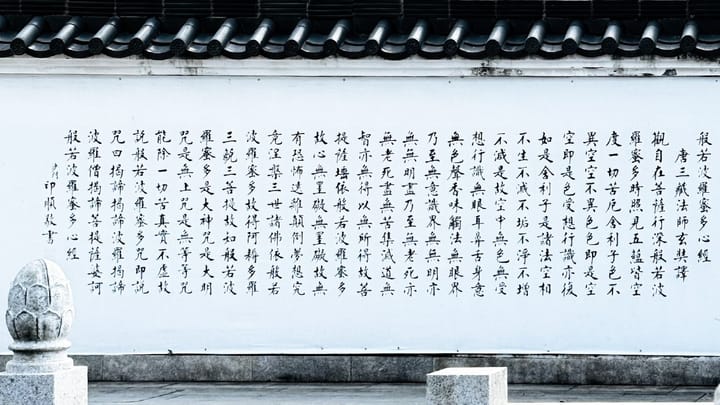 般若波羅蜜多心經
唐三藏法師玄奘譯
觀自在菩薩行深般若波
羅蜜多時照見五蘊皆空
度一切苦厄舍利子色不
異空空不異色色即是空
空即是色受想行識亦復
如是舍利子是諸法空相
不生不滅不垢不淨不增
不減是故空中無色無受
想行識無眼耳鼻舌身意
無色聲香味觸法無眼界
乃至無意識界無無明亦
無無明盡乃至無老死亦
無老死盡無苦集滅道無
智亦無得以無所得故菩
提薩埵依般若波羅蜜多
故心無罣礙無罣礙故無
有恐怖遠離顛倒夢想究
竟涅槃三世諸佛依般若
波羅蜜多故得阿耨多羅
三藐三菩提故知般若波
羅蜜多是大神咒是大明
咒是無上咒是無等等咒
能除一切苦真實不虛故
說般若波羅蜜多咒即說
咒曰揭諦揭諦波羅揭諦
波羅僧揭諦菩提薩婆訶
般若波羅蜜多心經
印順敬書